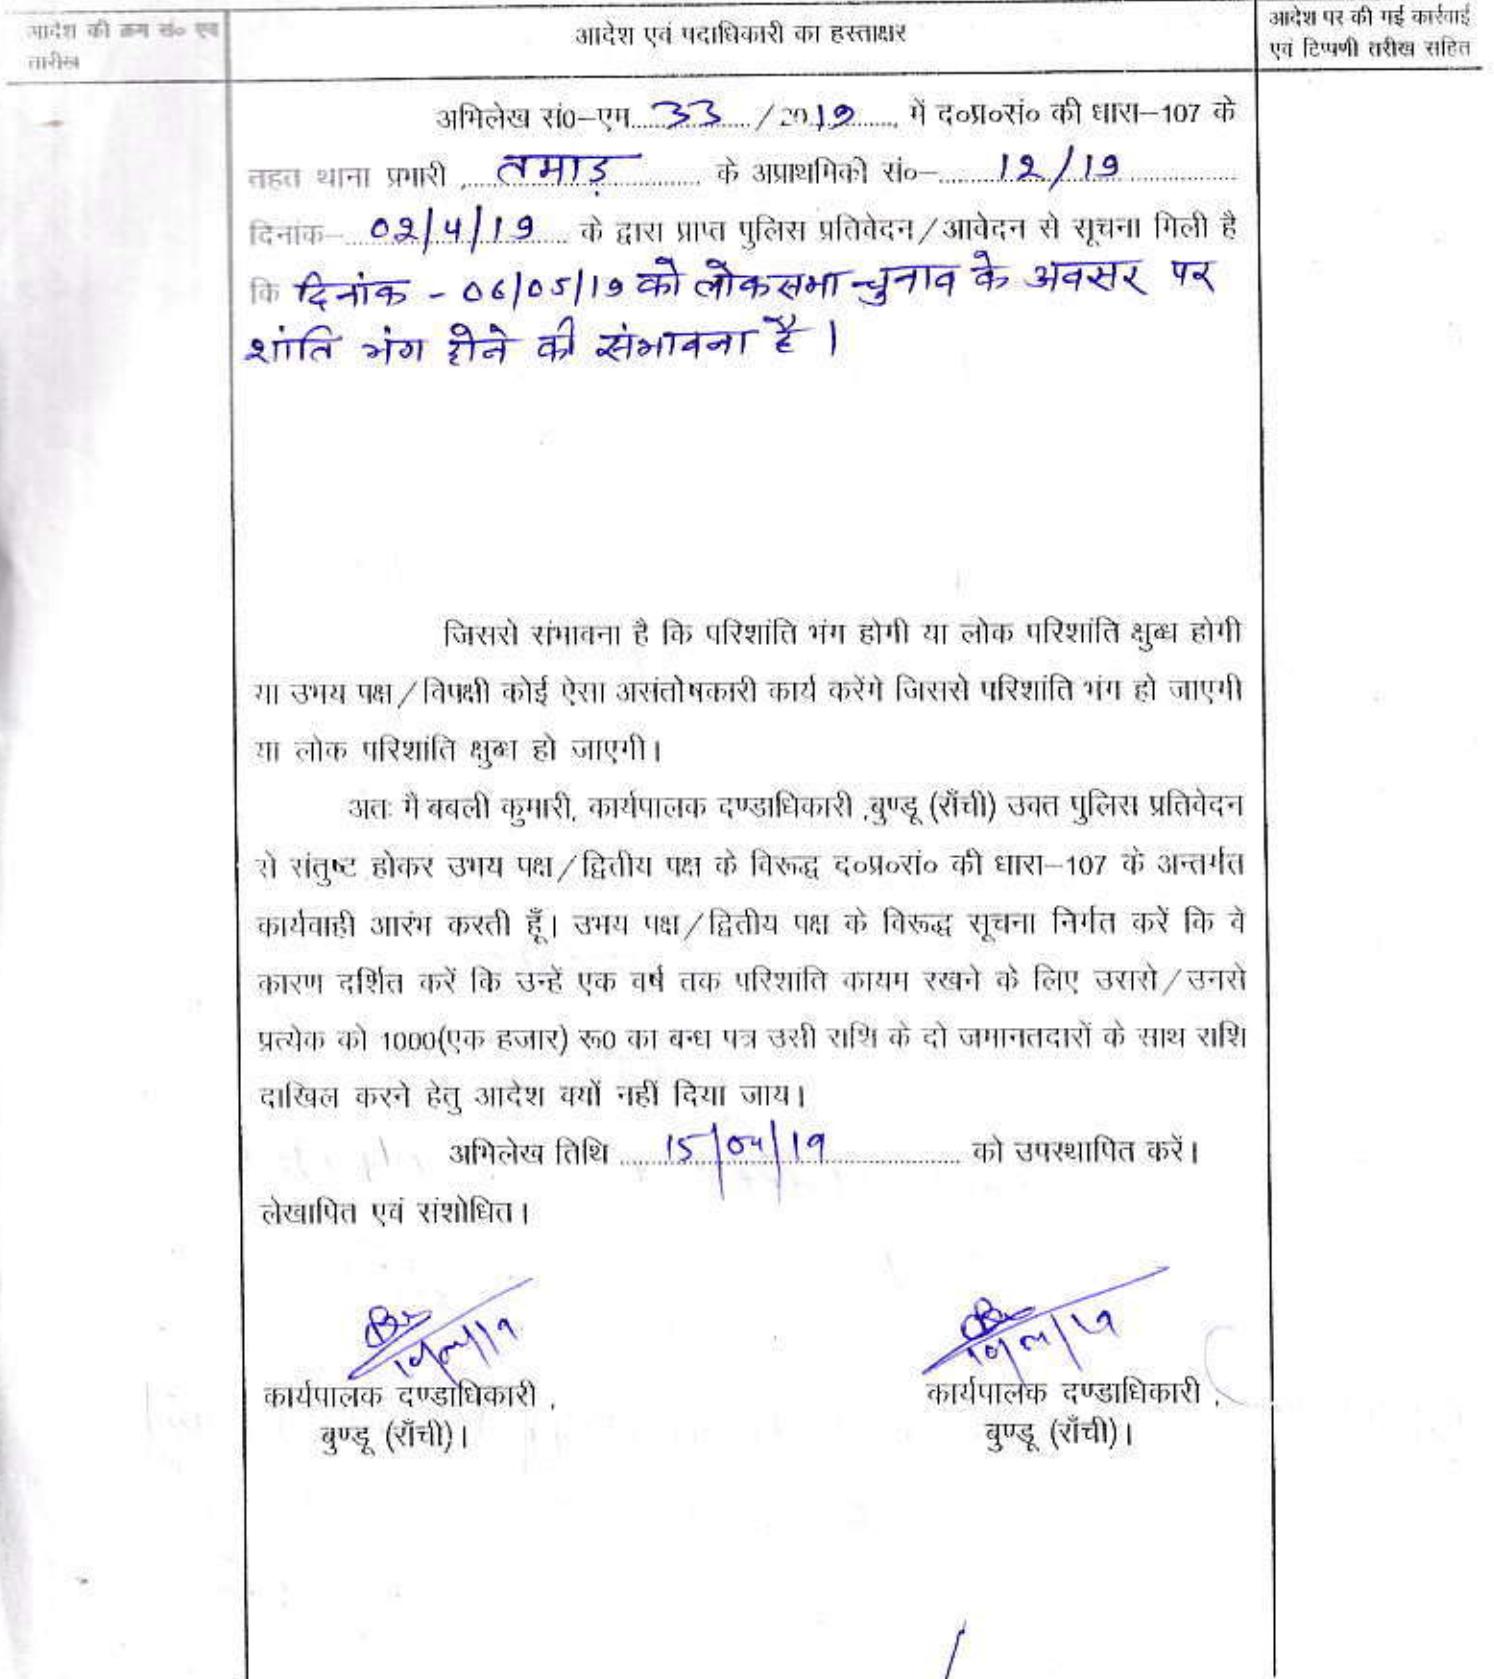 आदेश की क्रम सं० एवं
तारीख
आदेश एवं पदाधिकारी का हस्ताक्षर
आदेश पर की गई कार्रवाई
एवं टिप्पणी तरीख सहित
अभिलेख सं0–एम 33 /2019 में द०प्र०सं० की धारा–107 के
तहत थाना प्रभारी , तमाड़ के अप्राथमिकी सं०– 12/19
दिनांक– 02/4/19 के द्वारा प्राप्त पुलिस प्रतिवेदन/आवेदन से सूचना मिली है
कि दिनांक - 06/05/19 को लोकसभा चुनाव के अवसर पर
शांति भंग होने की संभावना है।
जिससे संभावना है कि परिशांति भंग होगी या लोक परिशांति क्षुब्ध होगी
या उभय पक्ष/विपक्षी कोई ऐसा असंतोषकारी कार्य करेंगे जिससे परिशांति भंग हो जाएगी
या लोक परिशांति क्षुब्ध हो जाएगी।
अतः मैं बबली कुमारी, कार्यपालक दण्डाधिकारी ,बुण्डू (राँची) उक्त पुलिस प्रतिवेदन
से संतुष्ट होकर उभय पक्ष/द्वितीय पक्ष के विरूद्ध द०प्र०सं० की धारा–107 के अन्तर्गत
कार्यवाही आरंभ करती हूँ। उभय पक्ष/द्वितीय पक्ष के विरूद्ध सूचना निर्गत करें कि वे
कारण दर्शित करें कि उन्हें एक वर्ष तक परिशांति कायम रखने के लिए उससे/उनसे
प्रत्येक को 1000(एक हजार) रू0 का बन्ध पत्र उसी राशि के दो जमानतदारों के साथ राशि
दाखिल करने हेतु आदेश क्यों नहीं दिया जाय।
अभिलेख तिथि 15/04/19 को उपस्थापित करें।
लेखापित एवं संशोधित।
कार्यपालक दण्डाधिकारी , कार्यपालक दण्डाधिकारी ,
बुण्डू (राँची)। बुण्डू (राँची)।